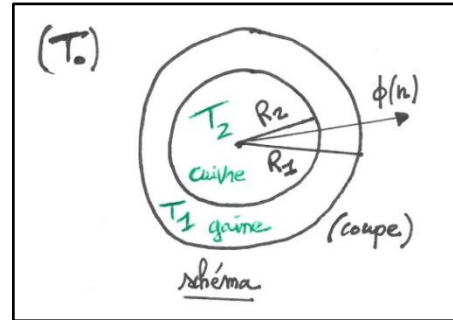 (T₀)
ϕ(r)
R₂
T₂
R₁
cuivre
T₁ gaine
(coupe)
schéma